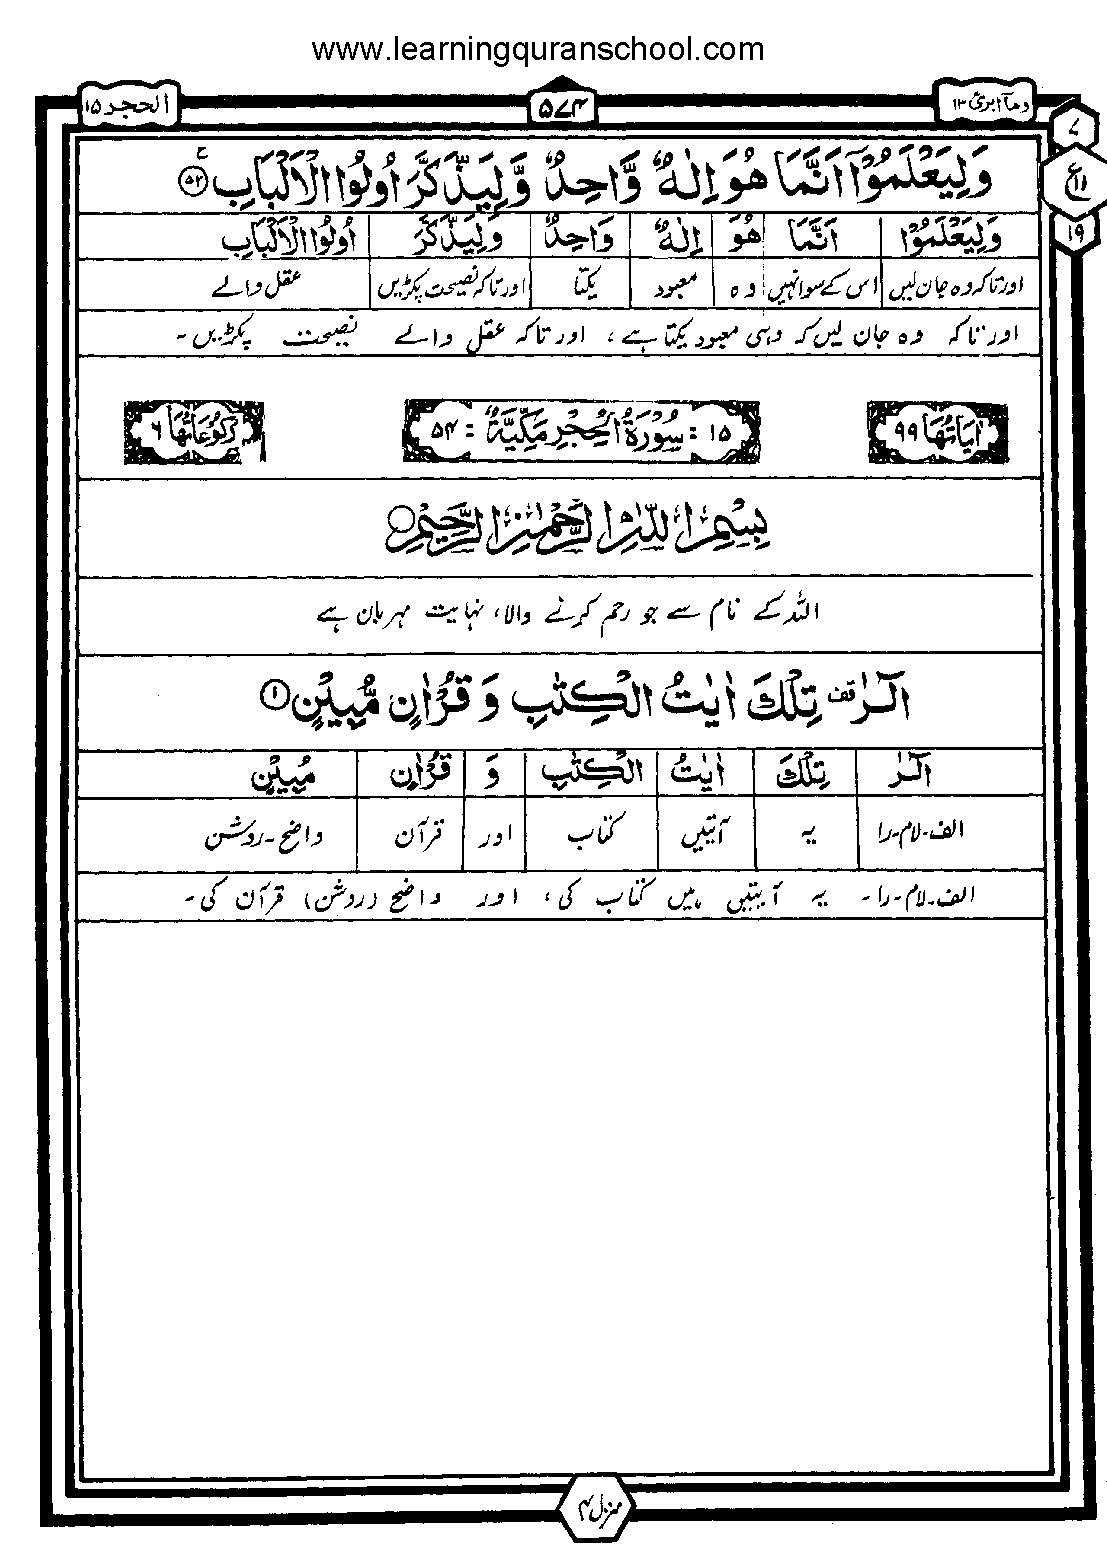 www.learningquranschool.com
وما ابری ۱۳
۵۷۴
الحجر ۱۵
۷
ع ۱۱
۱۹
وَلِيَعْلَمُوْۤا اَنَّمَا هُوَ اِلٰهٌ وَّاحِدٌ وَّلِيَذَّكَّرَ اُولُوا الْاَلْبَابِ ۵۲ ع
وَلِيَعْلَمُوْا اَنَّمَا هُوَ اِلٰهٌ وَاحِدٌ وَلِيَذَّكَّرَ اُولُوا الْاَلْبَابِ
اور تاکہ وہ جان لیں اس کے سوا نہیں وہ معبود یکتا اور تاکہ نصیحت پکڑیں عقل والے
اور تاکہ وہ جان لیں کہ وہی معبود یکتا ہے، اور تاکہ عقل والے نصیحت پکڑیں۔
اٰيَاتُهَا ۹۹
۱۵: سُوْرَةُ الْحِجْرِ مَكِّيَّةٌ :۵۴
رُكُوْعَاتُهَا ۶
بِسْمِ اللّٰهِ الرَّحْمٰنِ الرَّحِيْمِ
اللہ کے نام سے جو رحم کرنے والا، نہایت مہربان ہے
الٓرٰ قف تِلْكَ اٰيٰتُ الْكِتٰبِ وَ قُرْاٰنٍ مُّبِيْنٍ ۱
الٓرٰ تِلْكَ اٰيٰتُ الْكِتٰبِ وَ قُرْاٰنٍ مُبِيْنٍ
الف۔لام۔را یہ آیتیں کتاب اور قرآن واضح۔روشن
الف۔لام۔را۔ یہ آیتیں ہیں کتاب کی، اور واضح (روشن) قرآن کی۔
منزل ۳